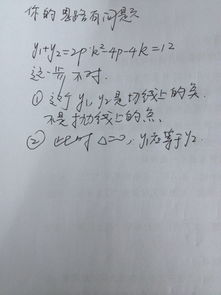 你的思路有问题:
y₁+y₂=2p·k²-4p-4k=12
这一步不对.
① 这个y₁, y₂是切线上的点.
不是抛物线上的点.
② 此时 Δ=0, y₁应等于y₂.